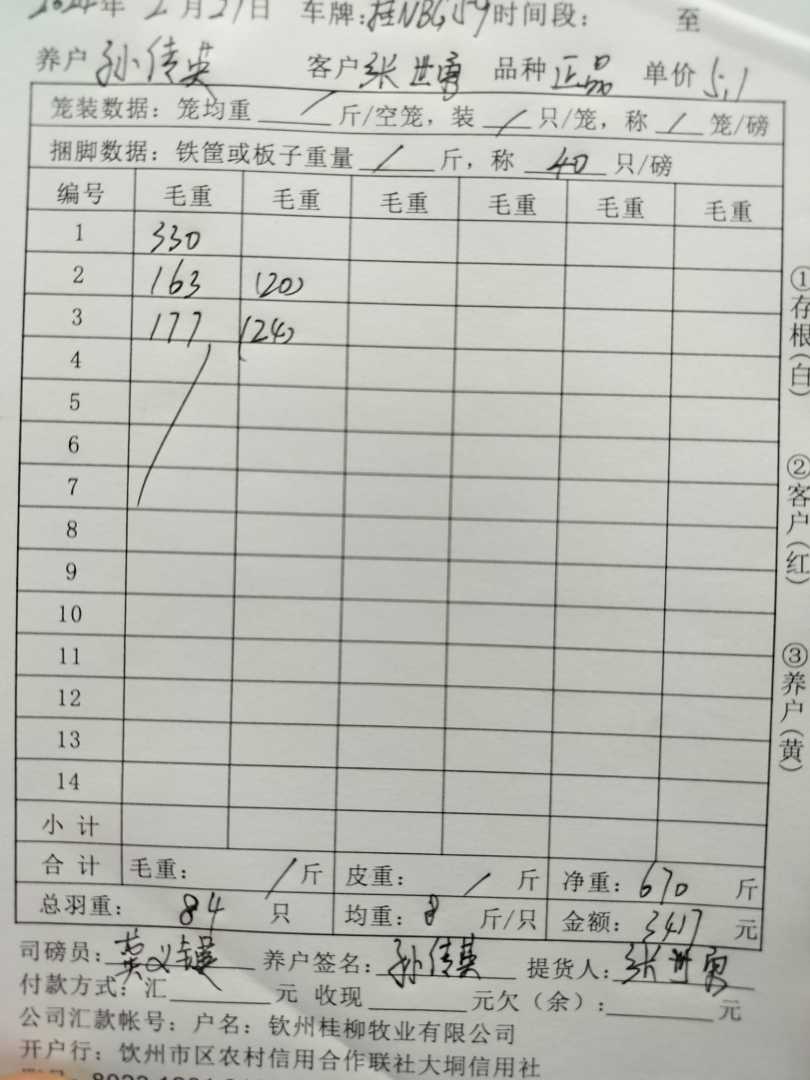 2024年 2月27日 车牌:桂NBG 时间段: 至
养户 孙倩英 客户 张世勇 品种 正品 单价 5.1
笼装数据:笼均重 / 斤/空笼,装 / 只/笼,称 / 笼/磅
捆脚数据:铁筐或板子重量 / 斤,称 40 只/磅
编号 毛重 毛重 毛重 毛重 毛重 毛重
1 330
2 163 (20)
3 177 (24)
4
5
6
7
8
9
10
11
12
13
14
小计
合计 毛重: / 斤 皮重: / 斤 净重:670 斤
总羽重: 84 只 均重:8 斤/只 金额:3417 元
司磅员: 养户签名:孙倩英 提货人:张世勇
付款方式:汇 元 收现 元欠(余): 元
公司汇款帐号:户名:钦州桂柳牧业有限公司
开户行:饮州市区农村信用合作联社大垌信用社
①存根(白)
②客户(红)
③养户(黄)